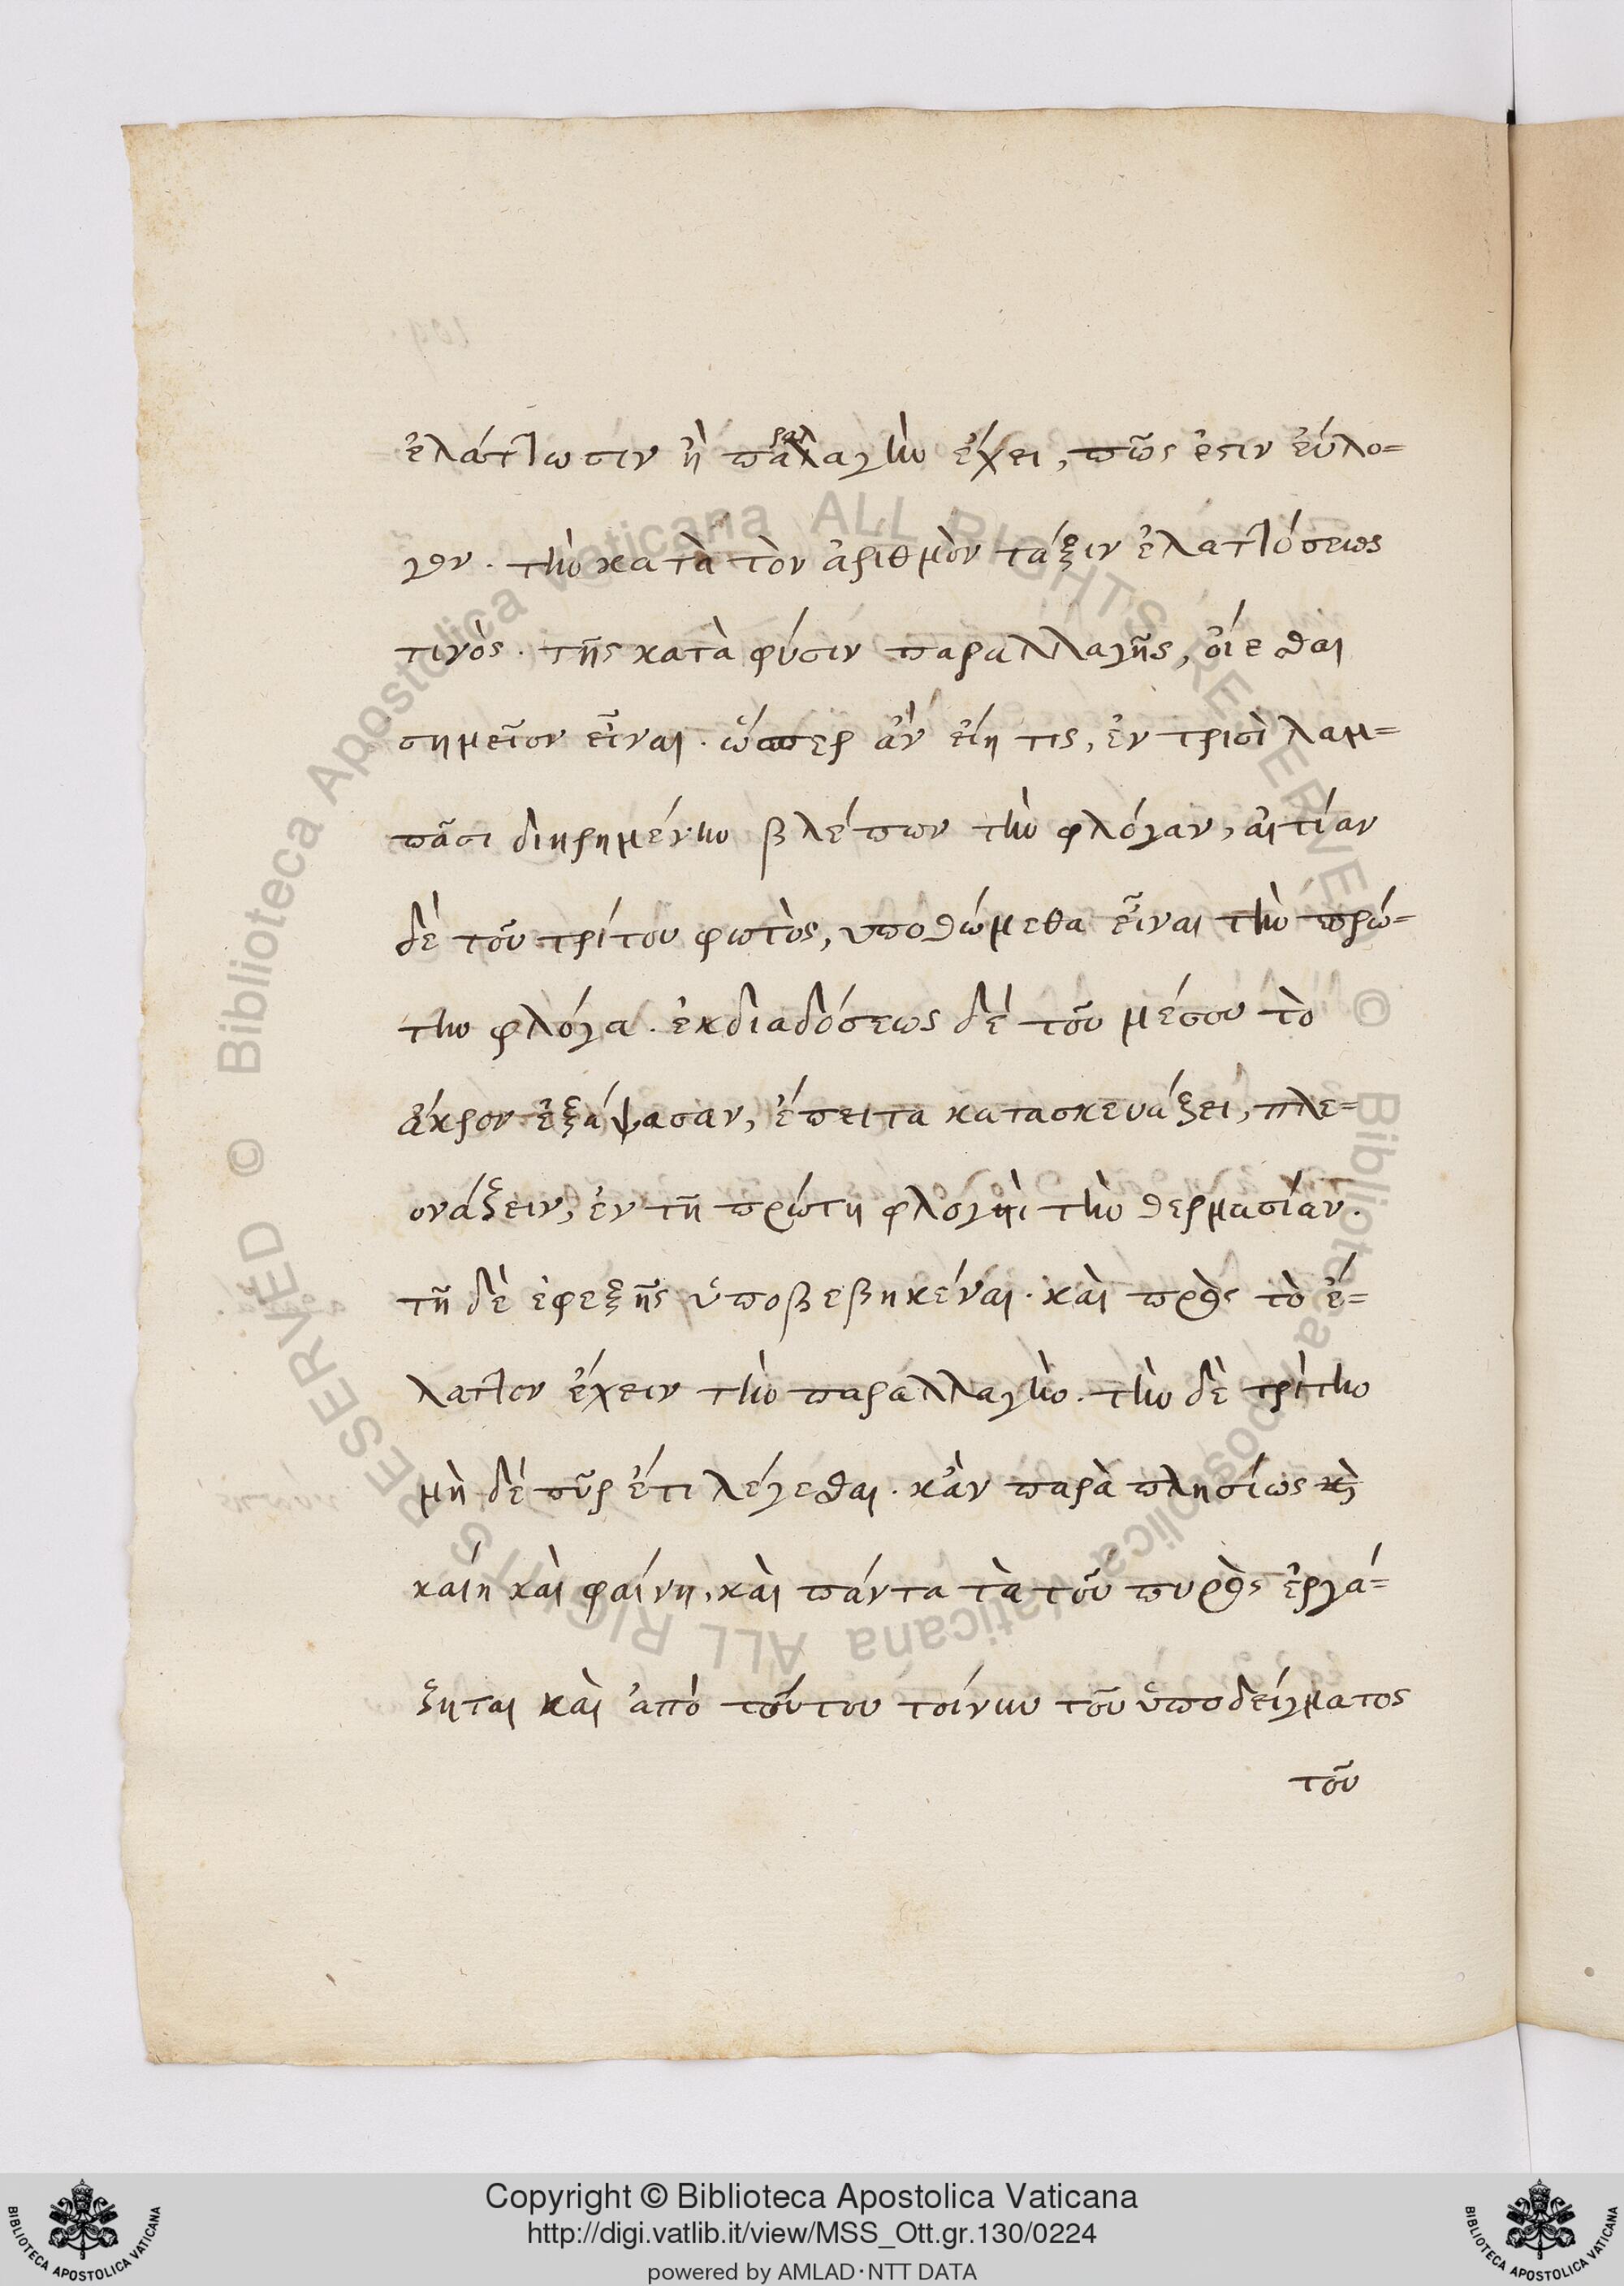 ἐλάττωσιν ἢ παραλλαγὴν ἔχει, πῶς ἐστιν εὔλο=
γον . τὴν κατὰ τὸν ἀριθμὸν τάξιν ἐλαττόσεως
τινός . τῆς κατὰ φύσιν παραλλαγῆς, οἴεσθαι
σημεῖον εἶναι . ὥσπερ ἂν εἴη τις, ἐν τρισὶ λαμ=
πᾶσι διηρημένην βλέπων τὴν φλόγαν, αἰτίαν
δὲ τοῦ τρίτου φωτὸς, ὑποθώμεθα εἶναι τὴν πρώ=
την φλόγα . ἐκδιαδόσεως δὲ τοῦ μέσου τὸ
ἄκρον ἐξάψασαν, ἔπειτα κατασκευάζει, πλε=
ονάζειν, ἐν τῆ πρώτη φλογηὶ τὴν θερμασίαν .
τῆ δὲ ἐφεξῆς ὑποβεβηκέναι . καὶ πρὸς τὸ ἔ=
λαττον ἔχειν τὴν παραλλαγὴν . τὴν δὲ τρίτην
μὴ δὲ πῦρ ἔτι λέγεσθαι . κἂν παρὰ πλησίως κὶ
καίη καὶ φαίνη, καὶ πάντα τὰ τοῦ πυρὸς ἐργά=
ζηται καὶ ἀπὸ τούτου τοίνυν τοῦ ὑποδείγματος
τοῦ
Copyright © Biblioteca Apostolica Vaticana
http://digi.vatlib.it/view/MSS_Ott.gr.130/0224
powered by AMLAD·NTT DATA
BIBLIOTECA APOSTOLICA VATICANA
BIBLIOTECA APOSTOLICA VATICANA
© Biblioteca Apostolica Vaticana ALL RIGHTS RESERVED
© Biblioteca Apostolica Vaticana ALL RIGHTS RESERVED